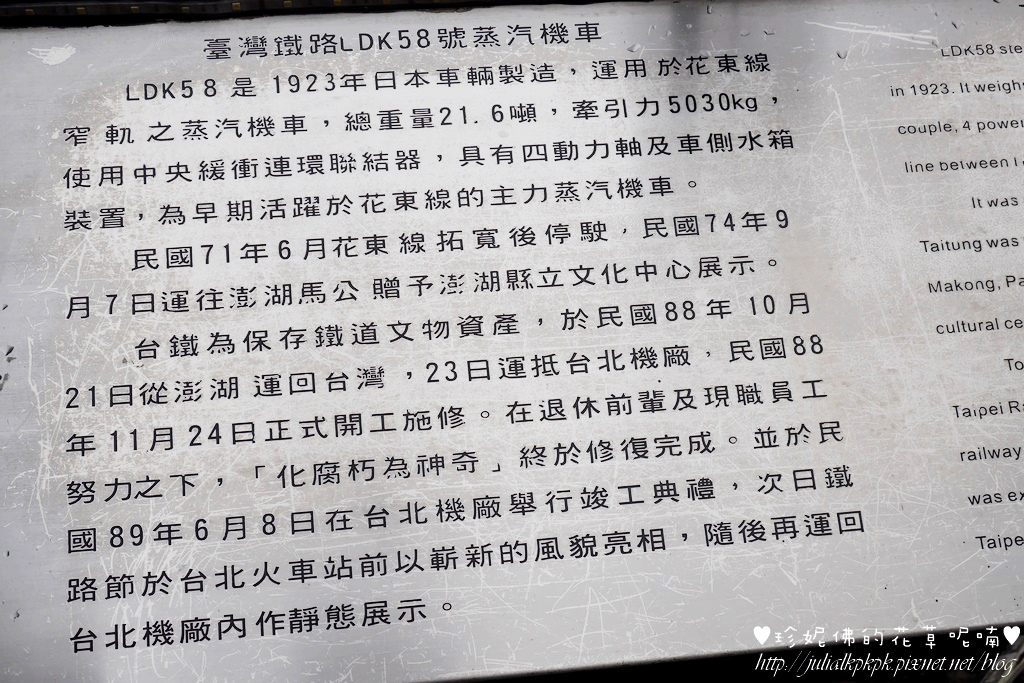 臺灣鐵路LDK58號蒸汽機車
LDK58是1923年日本車輛製造，運用於花東線
窄軌之蒸汽機車，總重量21.6噸，牽引力5030kg，
使用中央緩衝連環聯結器，具有四動力軸及車側水箱
裝置，為早期活躍於花東線的主力蒸汽機車。
民國71年6月花東線拓寬後停駛，民國74年9
月7日運往澎湖馬公贈予澎湖縣立文化中心展示。
台鐵為保存鐵道文物資產，於民國88年10月
21日從澎湖運回台灣，23日運抵台北機廠，民國88
年11月24日正式開工施修。在退休前輩及現職員工
努力之下，「化腐朽為神奇」終於修復完成。並於民
國89年6月8日在台北機廠舉行竣工典禮，次日鐵
路節於台北火車站前以嶄新的風貌亮相，隨後再運回
台北機廠內作靜態展示。
LDK58 ste
in 1923. It weigh
couple, 4 power
line between
It was
Taitung was
Makong, Pa
cultural ce
To
Taipei Ra
railway
was ex
Taipe
♥珍妮佛的花草呢喃♥
http://julialkpkpk.pixnet.net/blog